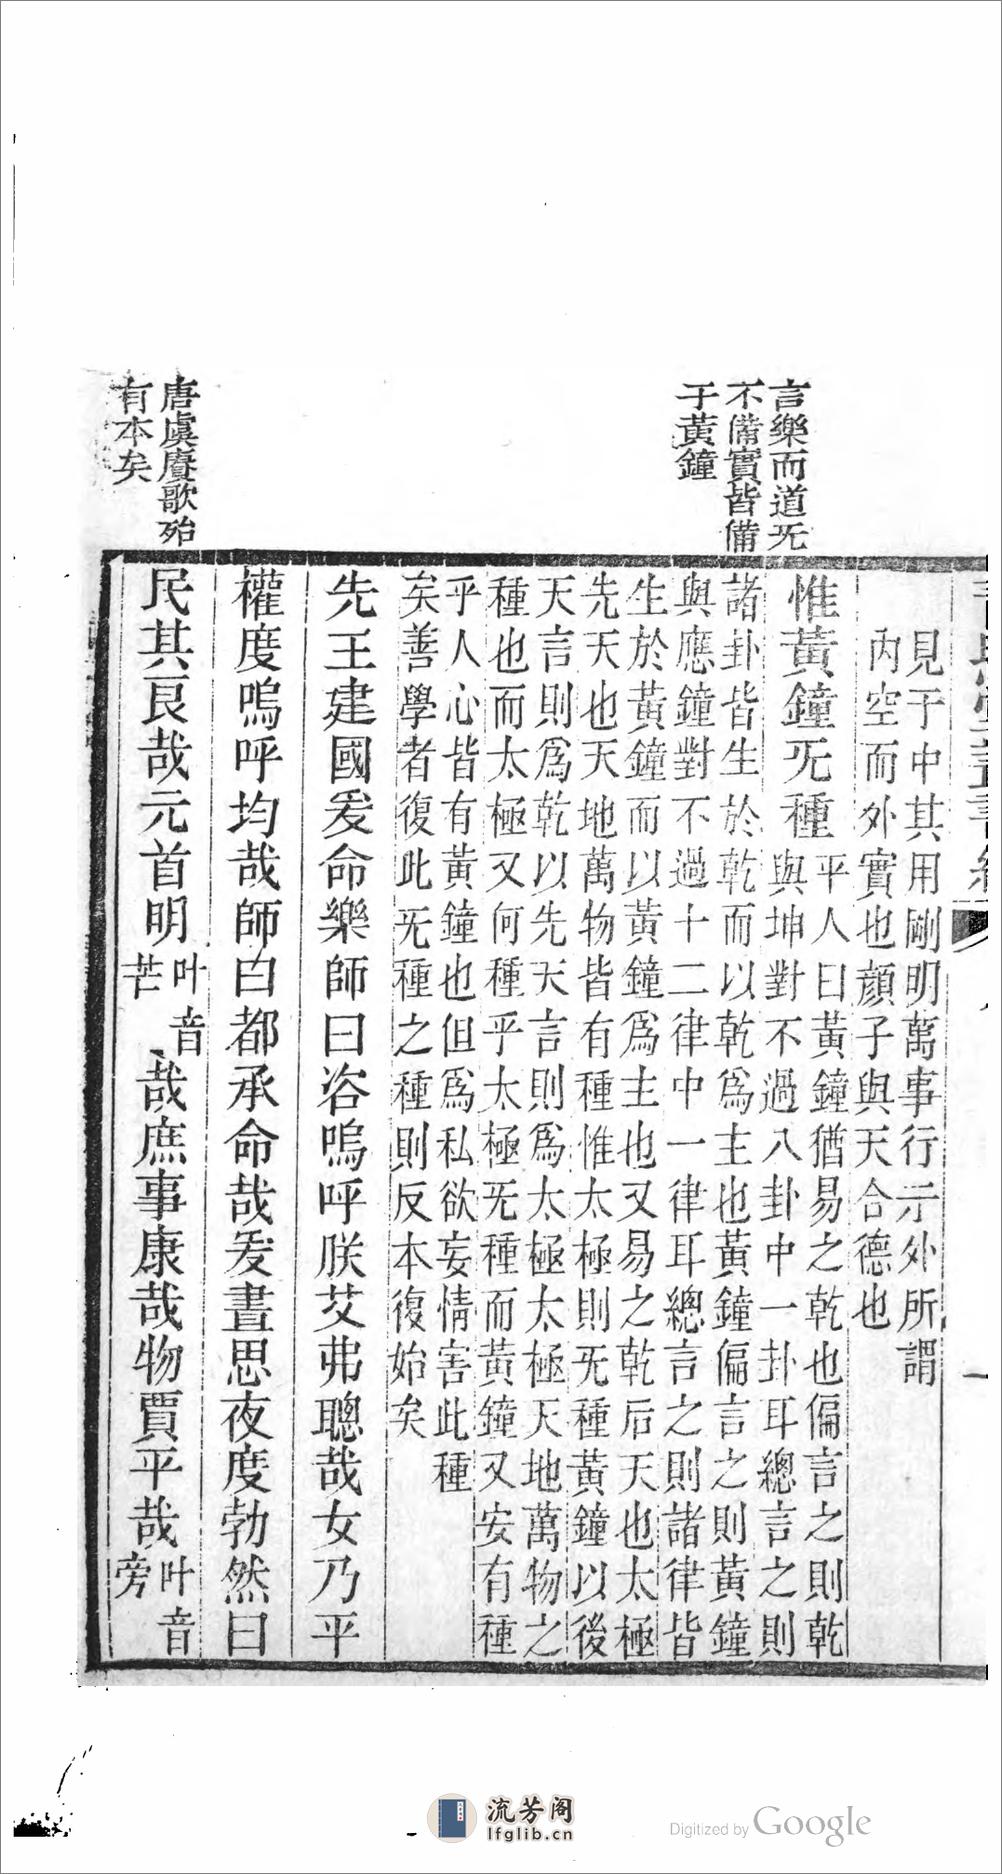 言樂而道旡
不備實皆備
于黃鐘
唐虞賡歌殆
有本矣
見于中其用剛明萬事行示外所謂
內空而外實也顏子與天合德也
惟黃鐘旡種
平人曰黃鐘猶易之乾也偏言之則乾
與坤對不過八卦中一卦耳總言之則
諸卦皆生於乾而以乾為主也黃鐘偏言之則黃鐘
與應鐘對不過十二律中一律耳總言之則諸律皆
生於黃鐘而以黃鐘為主也又易之乾后天也太極
先天也天地萬物皆有種惟太極則旡種黃鐘以後
天言則爲乾以先天言則爲太極太極天地萬物之
種也而太極又何種乎太極旡種而黃鐘又安有種
乎人心皆有黃鐘也但爲私欲妄情害此種
矣善學者復此旡種之種則反本復始矣
先王建國爰命樂師曰咨嗚呼朕艾弗聰哉女乃平
權度嗚呼均哉師曰都承命哉爰晝思夜度勃然曰
民其良哉元首明叶音芒哉庶事康哉物賈平哉叶音旁
流芳阁
lfglib.cn
Digitized by Google